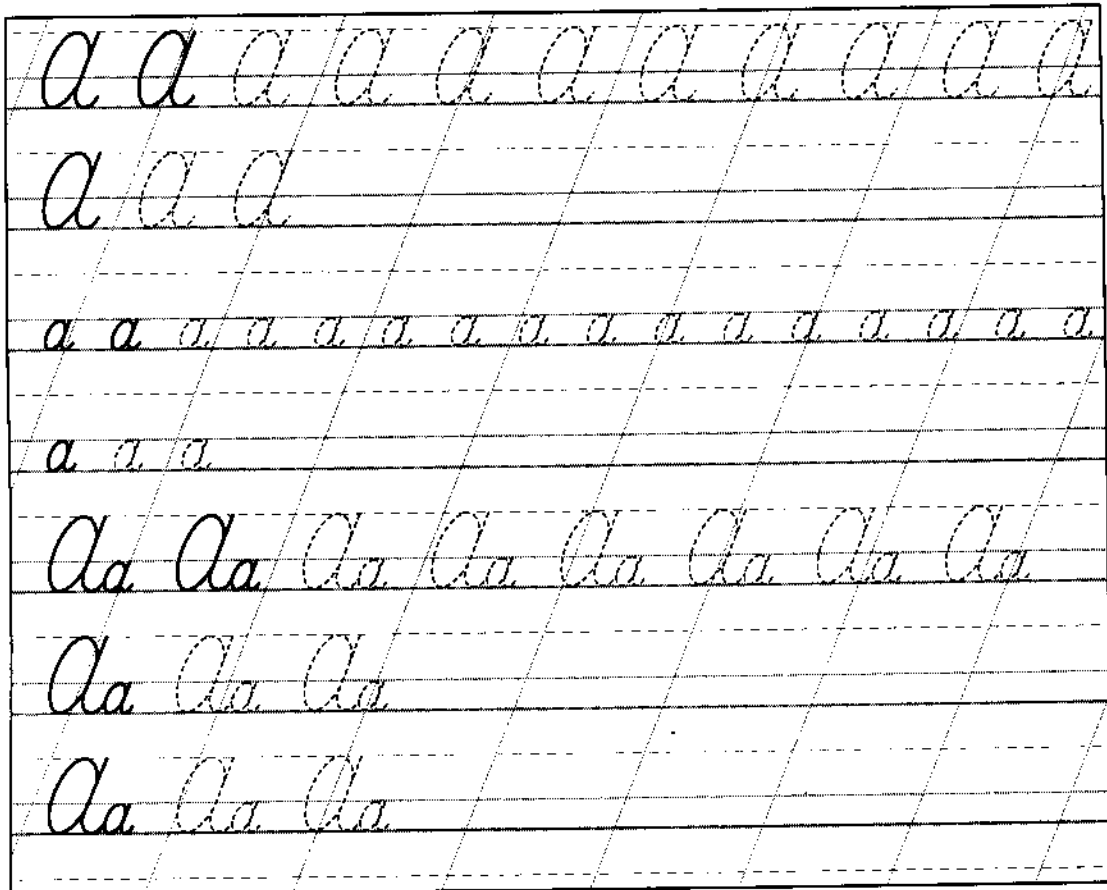 A A A A A A A A A A A
A A A
a a a a a a a a a a a a a a a a
a a a
Aa Aa Aa Aa Aa Aa Aa Aa
Aa Aa Aa
Aa Aa Aa